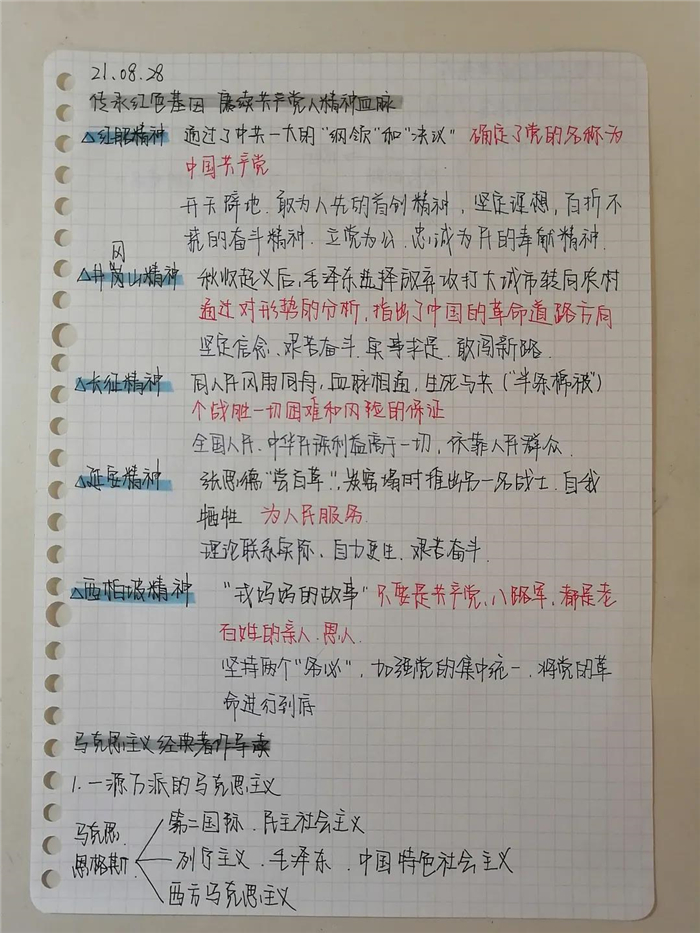 21.08.28
传承红色基因 赓续共产党人精神血脉
△红船精神 通过了中共一大的"纲领"和"决议" 确定了党的名称为
中国共产党
开天辟地、敢为人先的首创精神，坚定理想，百折不
挠的奋斗精神、立党为公、忠诚为民的奉献精神.
冈
△井岗山精神 秋收起义后，毛泽东选择放弃攻打大城市转向农村
通过对形势的分析，指出了中国的革命道路方向
坚定信念、艰苦奋斗、实事求是、敢闯新路.
△长征精神 同人民风雨同舟，血脉相通，生死与共（"半条棉被"）
个战胜一切困难和风险的保证
全国人民、中华民族利益高于一切，依靠人民群众.
△延安精神 张思德"尝百草"，炭窑塌时推出另一名战士、自我
牺牲 为人民服务.
理论联系实际、自力更生、艰苦奋斗.
△西柏坡精神 "戎妈妈的故事" 只要是共产党、八路军，都是老
百姓的亲人、恩人.
坚持两个"务必"，加强党的集中统一、将党的革
命进行到底
马克思主义经典著作导读
1. 一源万派的马克思主义
第二国际、民主社会主义
马克思、
恩格斯 列宁主义、毛泽东、中国特色社会主义
西方马克思主义